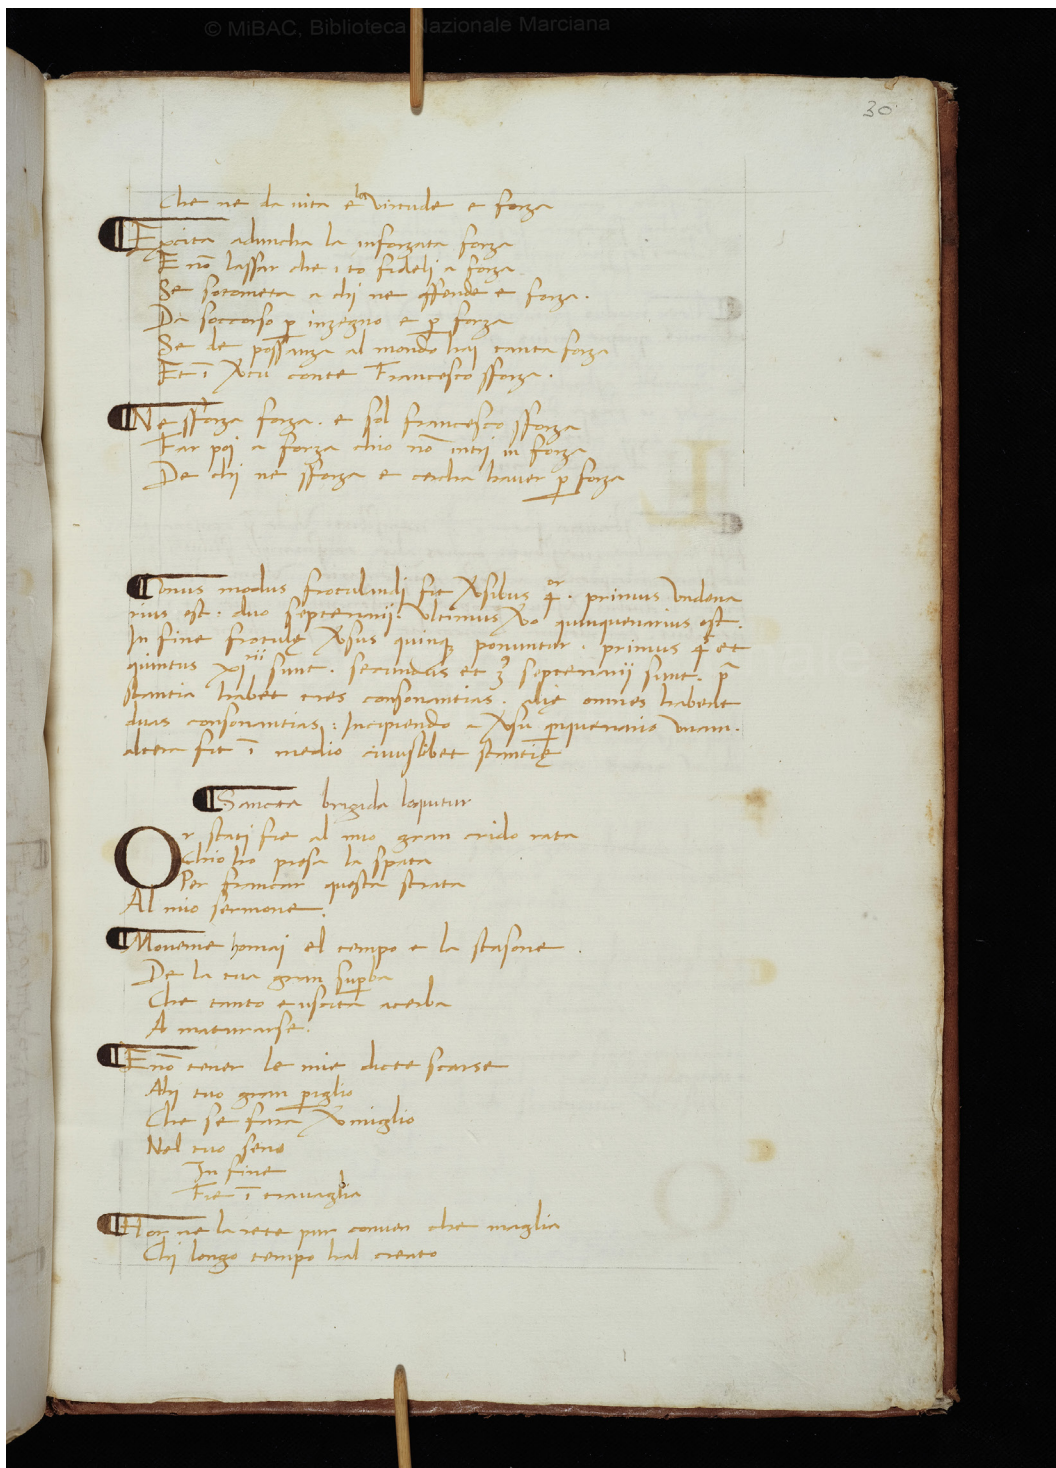 © MiBAC, Biblioteca Nazionale Marciana
30
Che ne da uita e la virtude e forza
Excita aduncha la inforzata forza
E nō lassar che i to fideli a forza
Se sotometa a chi ne offende e forza.
Da soccorso ꝑ inzegno e ꝑ forza
Se de possanza al mondo hai tanta forza
Et ī
conte Francesco sforza.
Ne sforza forza. e sol francesco sforza
Far poi a forza chio nō intri in forza
De chi ne sforza e cercha hauer ꝑ forza
modus frotulandi fit ꝟsibus 4or. primus Vndena
rius est. duo septenarii. Vltimus ꝟo quinquenarius est.
In fine frotulę ꝟsus quinqꝫ ponuntur. primus 4 et
quintus xirii sunt. secundus et 3 septenarii sunt. pͣ
stantia habet tres consonantias. alię omnes habent
duas consonantias: Incipiendo a ꝟsu quinquenario vnam.
altera fit ī medio cuiuslibet stantię
Sancta brigida loquitur
Or stati fie al mio gran crido rata
Chio ho presa la spata
Per francar questa strata
Al mio sermone.
Moueme homai el tempo e la stasone.
De la tua gran supba
Che tanto e uscita acerba
A maturarse.
E nō tener le mie dicte scarse
Ahi tuo gran ꝑiglio
Che se fara ꝟmiglio
Nel tuo seno
In fine
Fie ī trauaglia
Hor ne la rete pur conuen che maglia
Chi longo tempo hal